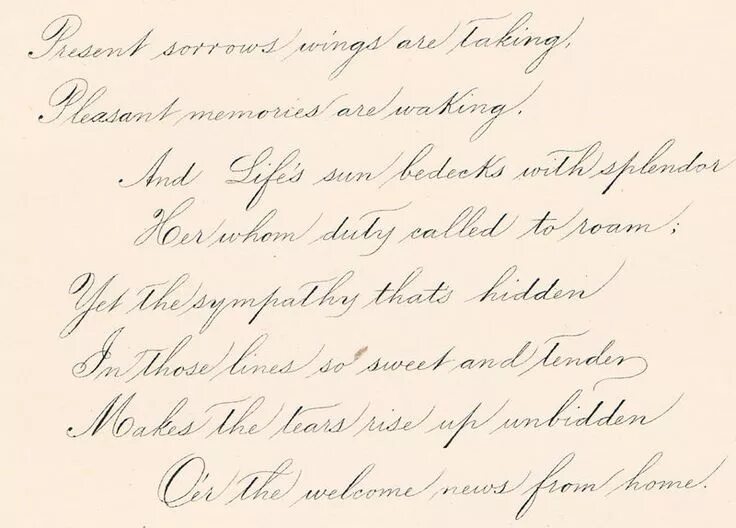 Present sorrows wings are taking,
Pleasant memories are waking,
And Life's sun bedecks with splendor
Her whom duty called to roam;
Yet the sympathy that's hidden
In those lines so sweet and tender
Makes the tears rise up unbidden
O'er the welcome news from home.